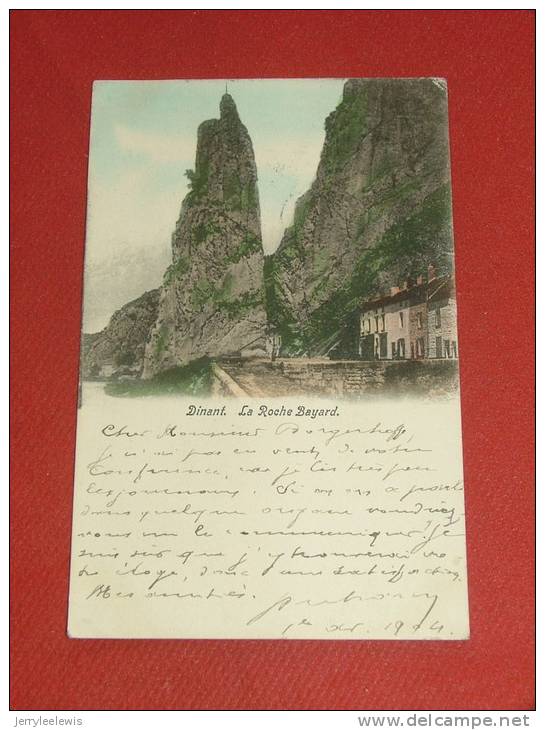 Dinant. La Roche Bayard.
Cher Monsieur Borgerhoff,
je n'ai pas eu vent de votre
Conférence, car je lis très peu
les journaux. Si on en a parlé
dans quelque organe voudriez
vous me le communiquer? Je
suis sûr que j'y trouverai vo
tre éloge, donc une satisfaction.
Mes amitiés.
1904.
jerryleelewis
www.delcampe.net